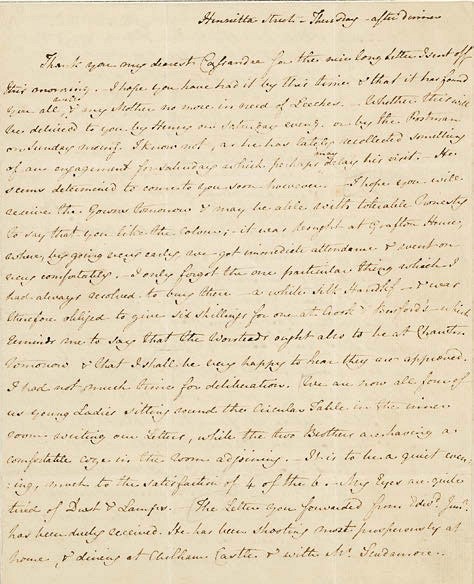 Henrietta Street - Thursday - after dinner
Thank you my dearest Cassandra for the nice long Letter I sent off
this morning. I hope you have had it by this time & that it has found
you all well, & my Mother no more in need of Leeches. - Whether this will
be delivered to you by Henry on Saturday eveng. or by the Postman
on Sunday morng. I know not, as he has lately recollected something
of an engagement for Saturday which perhaps may delay his visit. - He
seems determined to come to you soon however. - I hope you will
receive the Gown tomorrow & may be able with tolerable Honesty
to say that you like the Colour; - it was bought at Grafton House,
where, by going very early, we got immediate attendance & went on
very comfortably. - I only forgot the one particular thing which I
had always resolved to buy there - a white silk Handkf - & was
therefore obliged to give six shillings for one at Crook & Besford's - which
reminds me to say that the Worsteads ought also to be at Chawton
tomorrow & that I shall be very happy to hear they are approved.
I had not much time for deliberation. We are now all four of
us young Ladies sitting round the Circular Table in the inner
room writing our Letters, while the two Brothers are having a
comfortable coze in the room adjoining. - It is to be a quiet even-
:ing, much to the satisfaction of 4 of the 6. - My Eyes are quite
tired of Dust & Lamps. - The Letter you forwarded from Edwd. Junr.
has been duly received. He has been shooting most prosperously at
home, & dining at Chilham Castle & with Mr. Scudamore. -